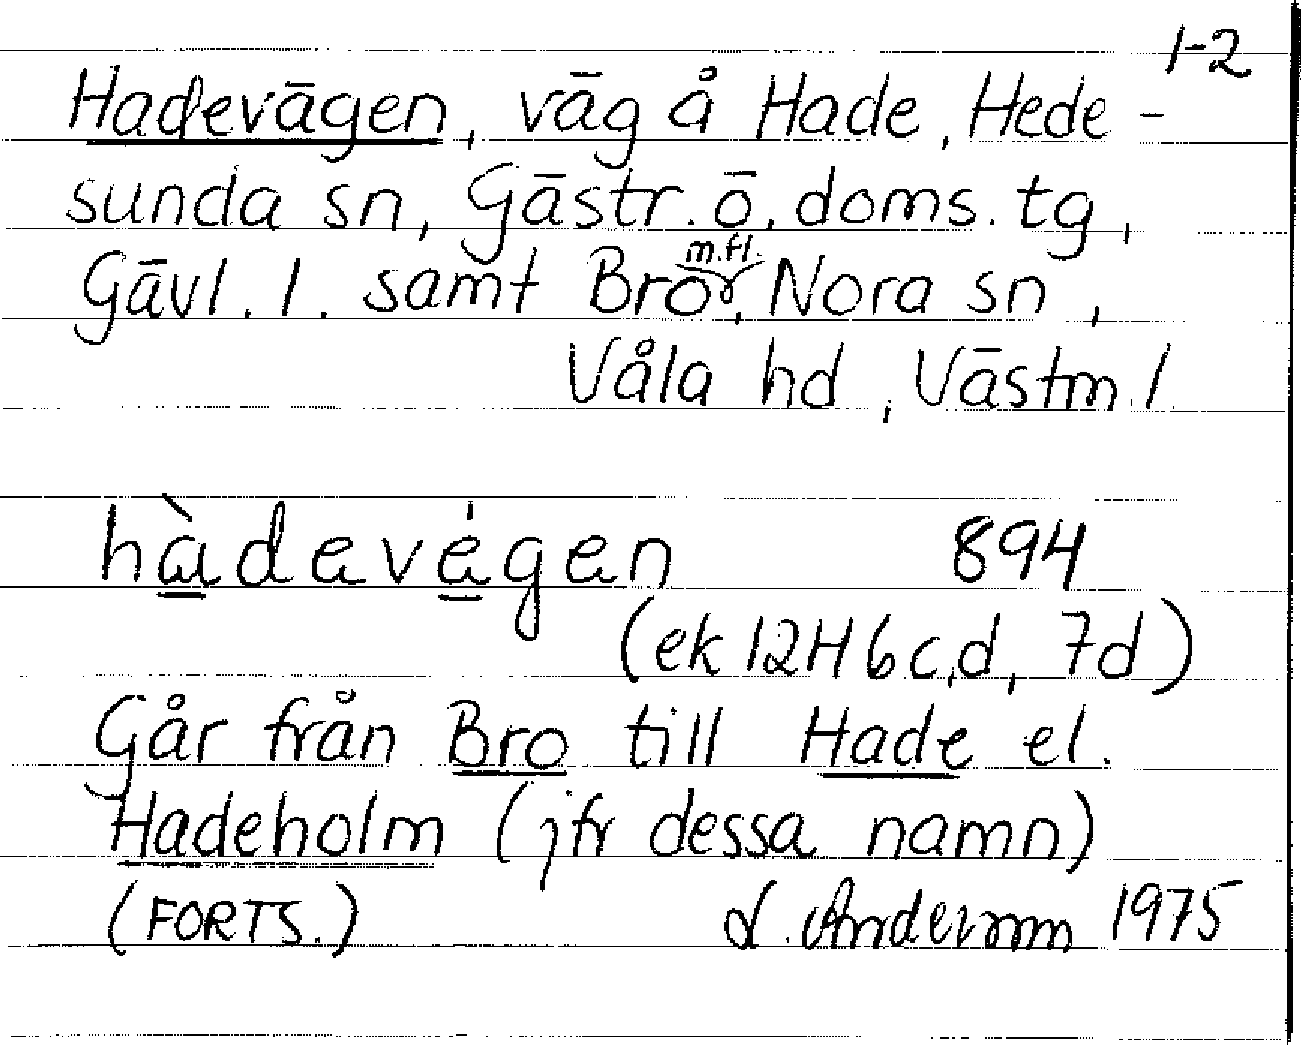 1-2
Hadevägen, väg å Hade, Hede-
sunda sn, Gästr. ö. doms. tg,
Gävl. l. samt Bro m.fl., Nora sn,
Våla hd, Västm l
hàdevégen 894
(ek 12H 6c,d, 7d)
Går från Bro till Hade el.
Hadeholm (jfr dessa namn)
(FORTS.) 1975